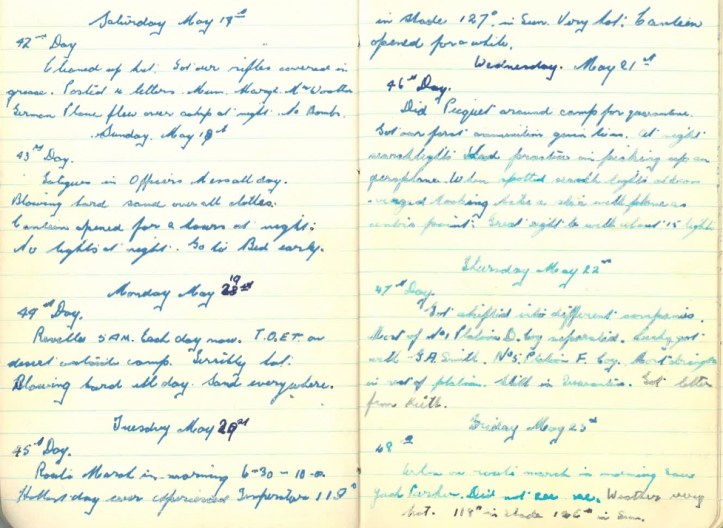 Saturday May 17th
42nd Day
Cleaned up hut. Got our rifles covered in
grease. Posted 4 letters. Mum. Margt. Mrs
German Plane flew over camp at night. No Bombs.
Sunday. May 18th
43rd Day.
Fatigues in Officers Mess all day.
Blowing hard sand over all clothes.
Canteen opened for 2 hours at night.
No lights at night. Go to Bed early.
Monday May 19th
44th Day.
Reveille 5 AM. Each day now. T.O.E.T. on
desert outside camp. Terribly hot.
Blowing hard all day. Sand everywhere.
Tuesday May 20th
45th Day.
Route March in morning 6-30 - 10-0.
Hottest day ever experienced Temperature 118°
in shade 127° in Sun. Very hot. Canteen
opened for a while.
Wednesday. May 21st
46th Day.
Did Picquet around camp for quarantine.
Got our first ammunition given him. At night
searchlights had practice in picking up an
aeroplane. When spotted search lights
looking like a star with plane as
centre point. Great sight to with about 15 lights
Thursday May 22nd
47th Day.
Got shifted into different companies.
Most of No 1 Platoon D. Coy separated. Lucky got
with G.A. Smith. No 5 Platoon F. Coy.
in rest of platoon. Still in Quarantine. Got letter
from Keith.
Friday May 23rd
48th
on route march in morning saw
Jack Did not see me. Weather very
hot. 119° in shade 126° in Sun.